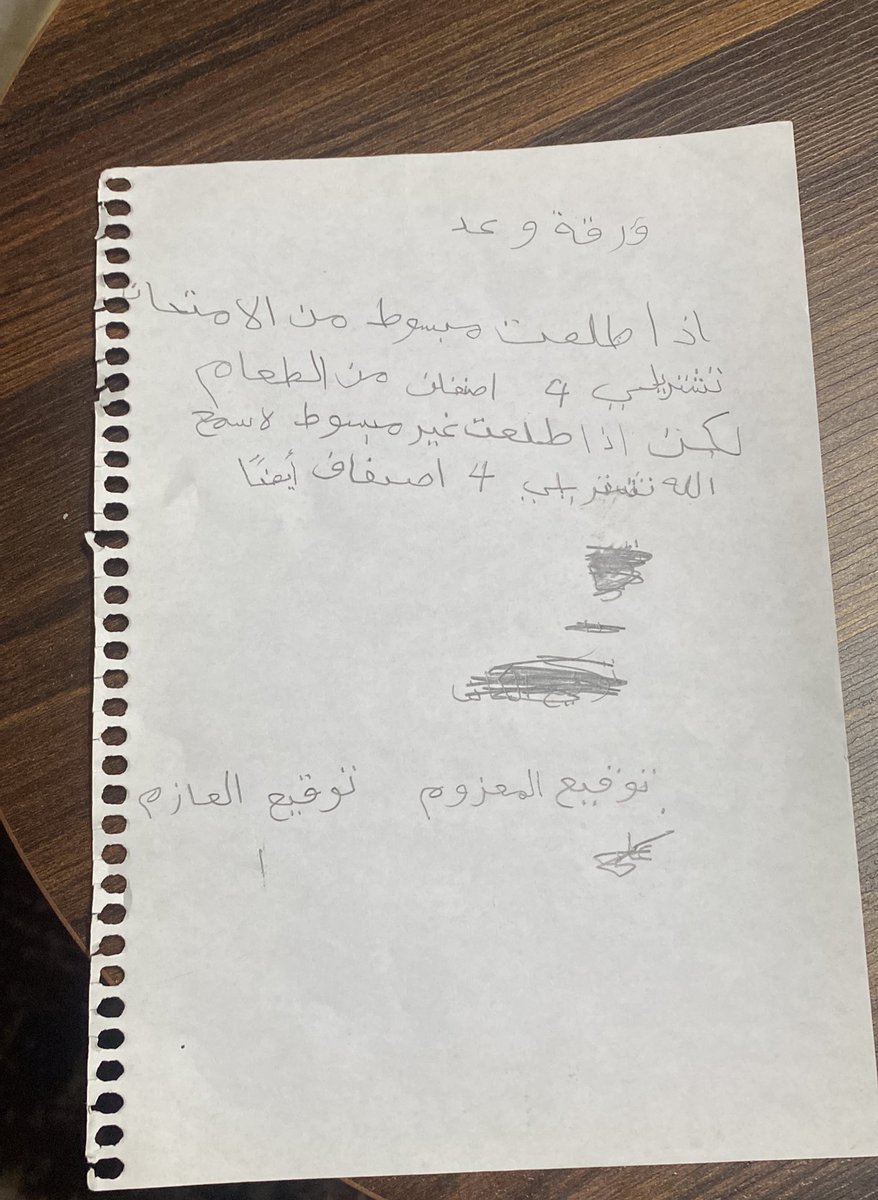 ورقة وعد
اذا طلعت مبسوط من الامتحان
تشتريلي 4 اصناف من الطعام
لكن اذا طلعت غير مبسوط لاسمح
الله تشتريلي 4 اصناف أيضًا
توقيع المعزوم توقيع العازم